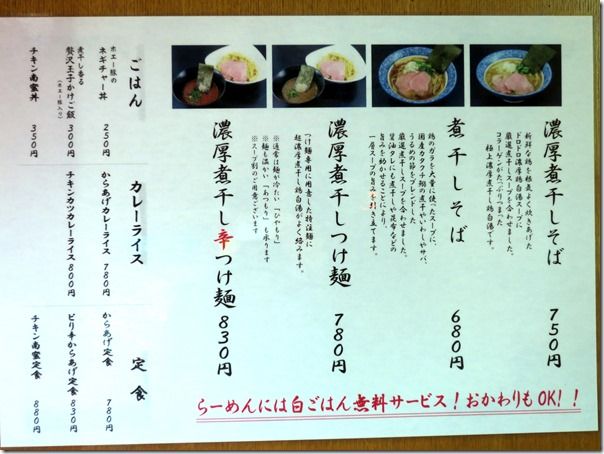 濃厚煮干しそば 750円
新鮮な鶏を根気よく炊きあげた
ドロドロ濃厚鶏白湯スープに
厳選煮干しスープを合わせました。
コラーゲンがたっぷりつまった
極上濃厚煮干し鶏白湯です。
煮干しそば 680円
鶏のガラを大量に使ったスープに、
国産カタクチ鰯の煮干やいわしやサバ、
うるめの節をブレンドした
厳選煮干しスープを合わせました。
醤油タレにも煮干しや昆布などの
旨みを効かせることにより、
一層スープの旨みを引き立てます。
濃厚煮干しつけ麺 780円
つけ麺専用に用意した特注麺に
超濃厚煮干し鶏白湯がよく絡みます。
※通常は麺が冷たい「ひやもり」
※麺も温かい「あつもり」も承ります
※スープ割のご用意ございます
濃厚煮干し辛つけ麺 830円
らーめんには白ごはん無料サービス！おかわりもOK！！
ごはん
ホエー豚の
ネギチャー丼 250円
煮干し香る
贅沢玉子かけご飯 300円
(ホエー豚入り)
チキン南蛮丼 350円
カレーライス
からあげカレーライス 780円
チキンカツカレーライス 800円
定食
からあげ定食 780円
ピリ辛からあげ定食 830円
チキン南蛮定食 880円